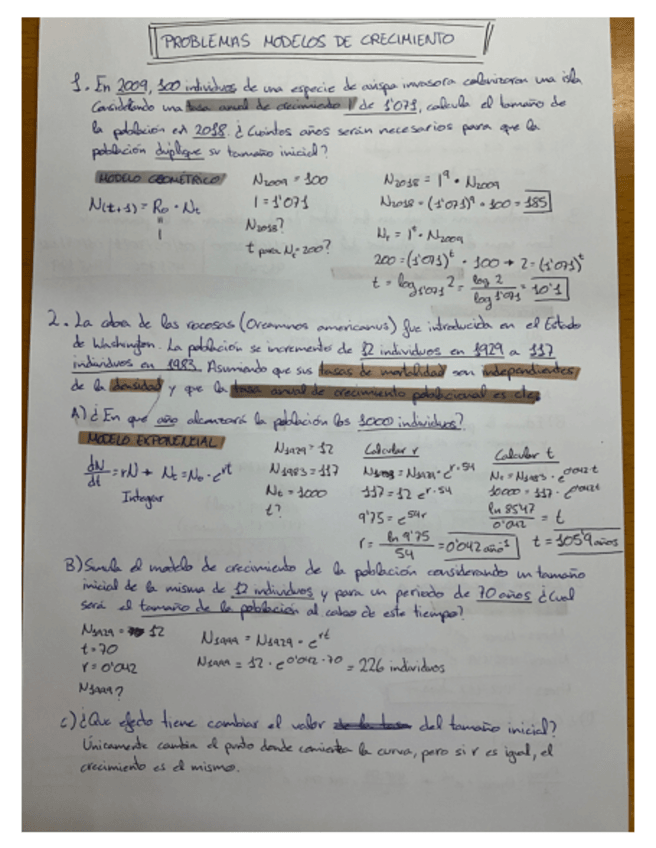 PROBLEMAS MODELOS DE CRECIMIENTO
1. En 2009, 100 individuos de una especie de avispa invasora colonizaron una isla
Considerando una tasa anual de crecimiento l de 1'071, calcula el tamaño de
la población en 2018. ¿Cuántos años serán necesarios para que la
población duplique su tamaño inicial?
MODELO GEOMÉTRICO
N(t+1) = R0 · Nt
"
l
N2009 = 100
l = 1'071
N2018?
t para Nt = 200?
N2018 = l^9 · N2009
N2018 = (1'071)^9 · 100 = 185
Nt = l^t · N2009
200 = (1'071)^t · 100 → 2 = (1'071)^t
t = log1'071 2 = log 2 / log 1'071 = 10'1
2. La cabra de las rocosas (Oreamnos americanus) fue introducida en el Estado
de Washington. La población se incremento de 12 individuos en 1929 a 117
individuos en 1983. Asumiendo que sus tasas de mortalidad son independientes
de la densidad y que la tasa anual de crecimiento poblacional es cte,
A) ¿En que año alcanzará la población los 1000 individuos?
MODELO EXPONENCIAL
dN/dt = rN → Nt = N0 · e^rt
Integrar
N1929 = 12
N1983 = 117
Nt = 1000
t?
Calcular r
N1983 = N1929 · e^r·54
117 = 12 e^r·54
9'75 = e^54r
r = ln 9'75 / 54 = 0'042 año^-1
Calcular t
Nt = N1983 · e^0'042t
10000 = 117 · e^0'042t
ln 85'47 / 0'042 = t
t = 105'9 años
B) Simula el modelo de crecimiento de la población considerando un tamaño
inicial de la misma de 12 individuos y para un periodo de 70 años ¿Cual
será el tamaño de la población al cabo de este tiempo?
N1929 = 12
t = 70
r = 0'042
N1999?
N1999 = N1929 · e^rt
N1999 = 12 · e^0'042·70 = 226 individuos
c) ¿Que efecto tiene cambiar el valor del tamaño inicial?
Únicamente cambia el punto donde comienza la curva, pero si r es igual, el
crecimiento es el mismo.